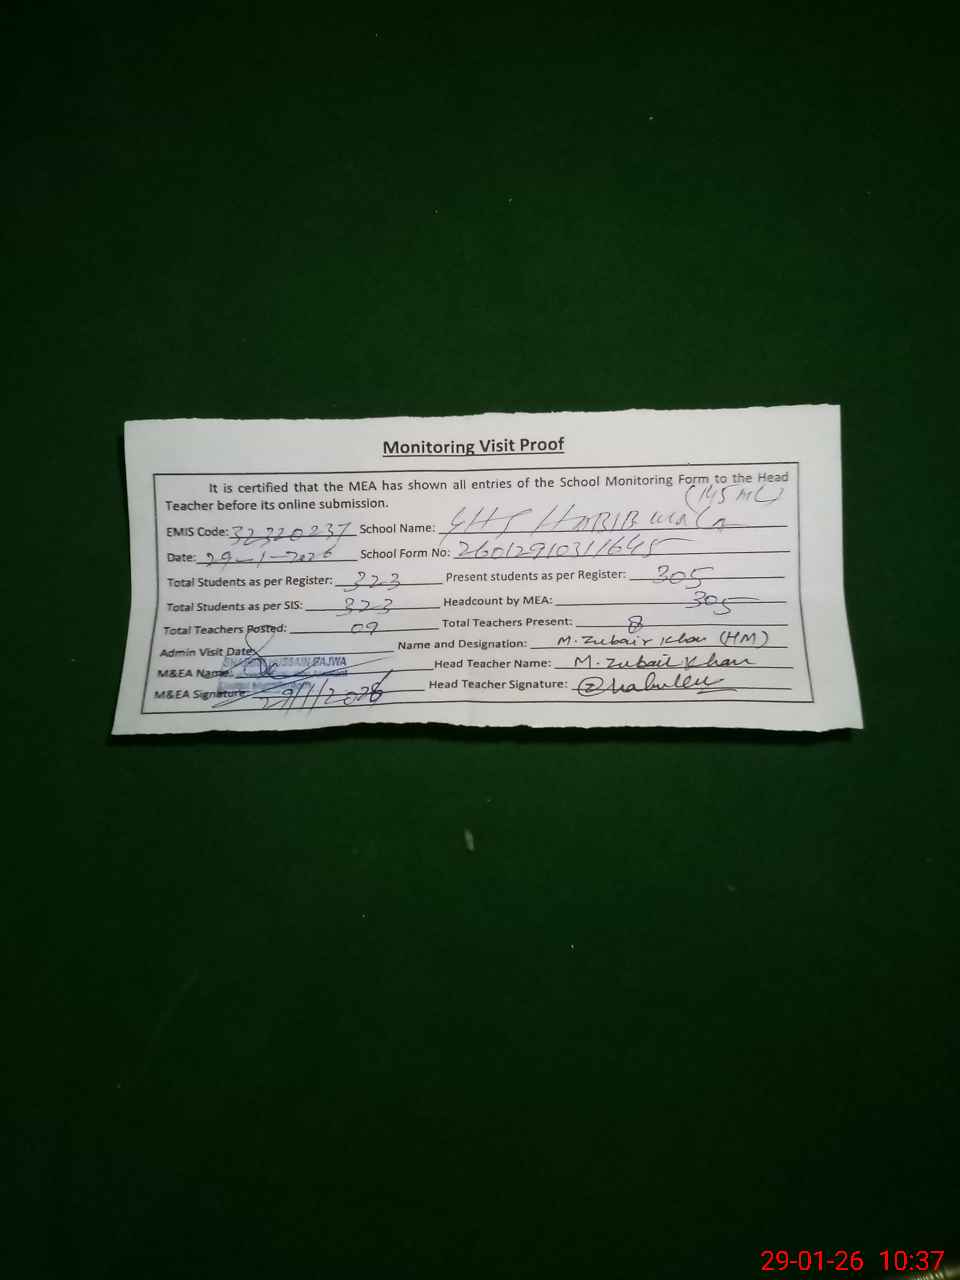 Monitoring Visit Proof
It is certified that the MEA has shown all entries of the School Monitoring Form to the Head
Teacher before its online submission.
(145 ML)
EMIS Code: 32320237 School Name: GHS HABIB wala
Date: 29-1-2026 School Form No: 26012910311645
Total Students as per Register: 323 Present students as per Register: 305
Total Students as per SIS: 323 Headcount by MEA: 305
Total Teachers Posted: 09 Total Teachers Present: 8
Admin Visit Date: Name and Designation: M. Zubair Khan (HM)
M&EA Name: HUSSAIN BAJWA Head Teacher Name: M. Zubair Khan
M&EA Signature: 29/1/2026 Head Teacher Signature:
29-01-26 10:37